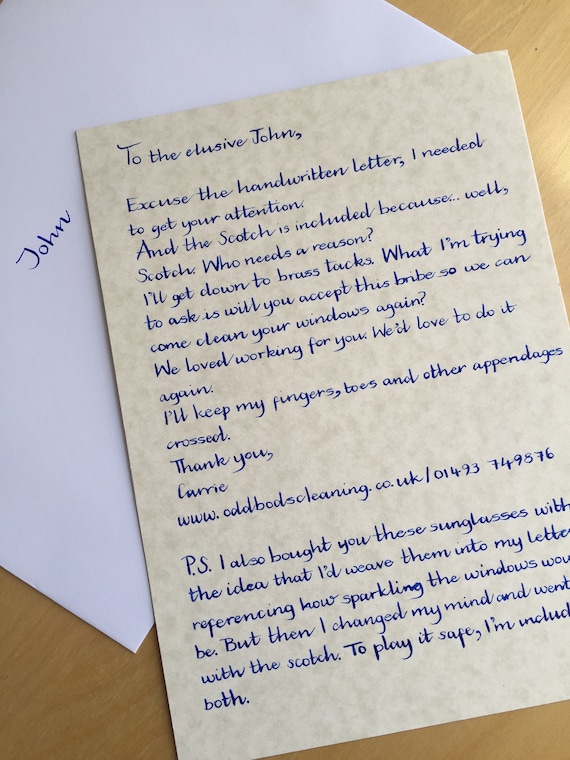 John
To the elusive John,
Excuse the handwritten letter, I needed
to get your attention.
And the Scotch is included because... well,
Scotch. Who needs a reason?
I'll get down to brass tacks. What I'm trying
to ask is will you accept this bribe so we can
come clean your windows again?
We loved working for you. We'd love to do it
again.
I'll keep my fingers, toes and other appendages
crossed.
Thank you,
Carrie
www.oddbodscleaning.co.uk/01493 749876
P.S. I also bought you these sunglasses with
the idea that I'd weave them into my letter
referencing how sparkling the windows wou
be. But then I changed my mind and went
with the scotch. To play it safe, I'm includ
both.